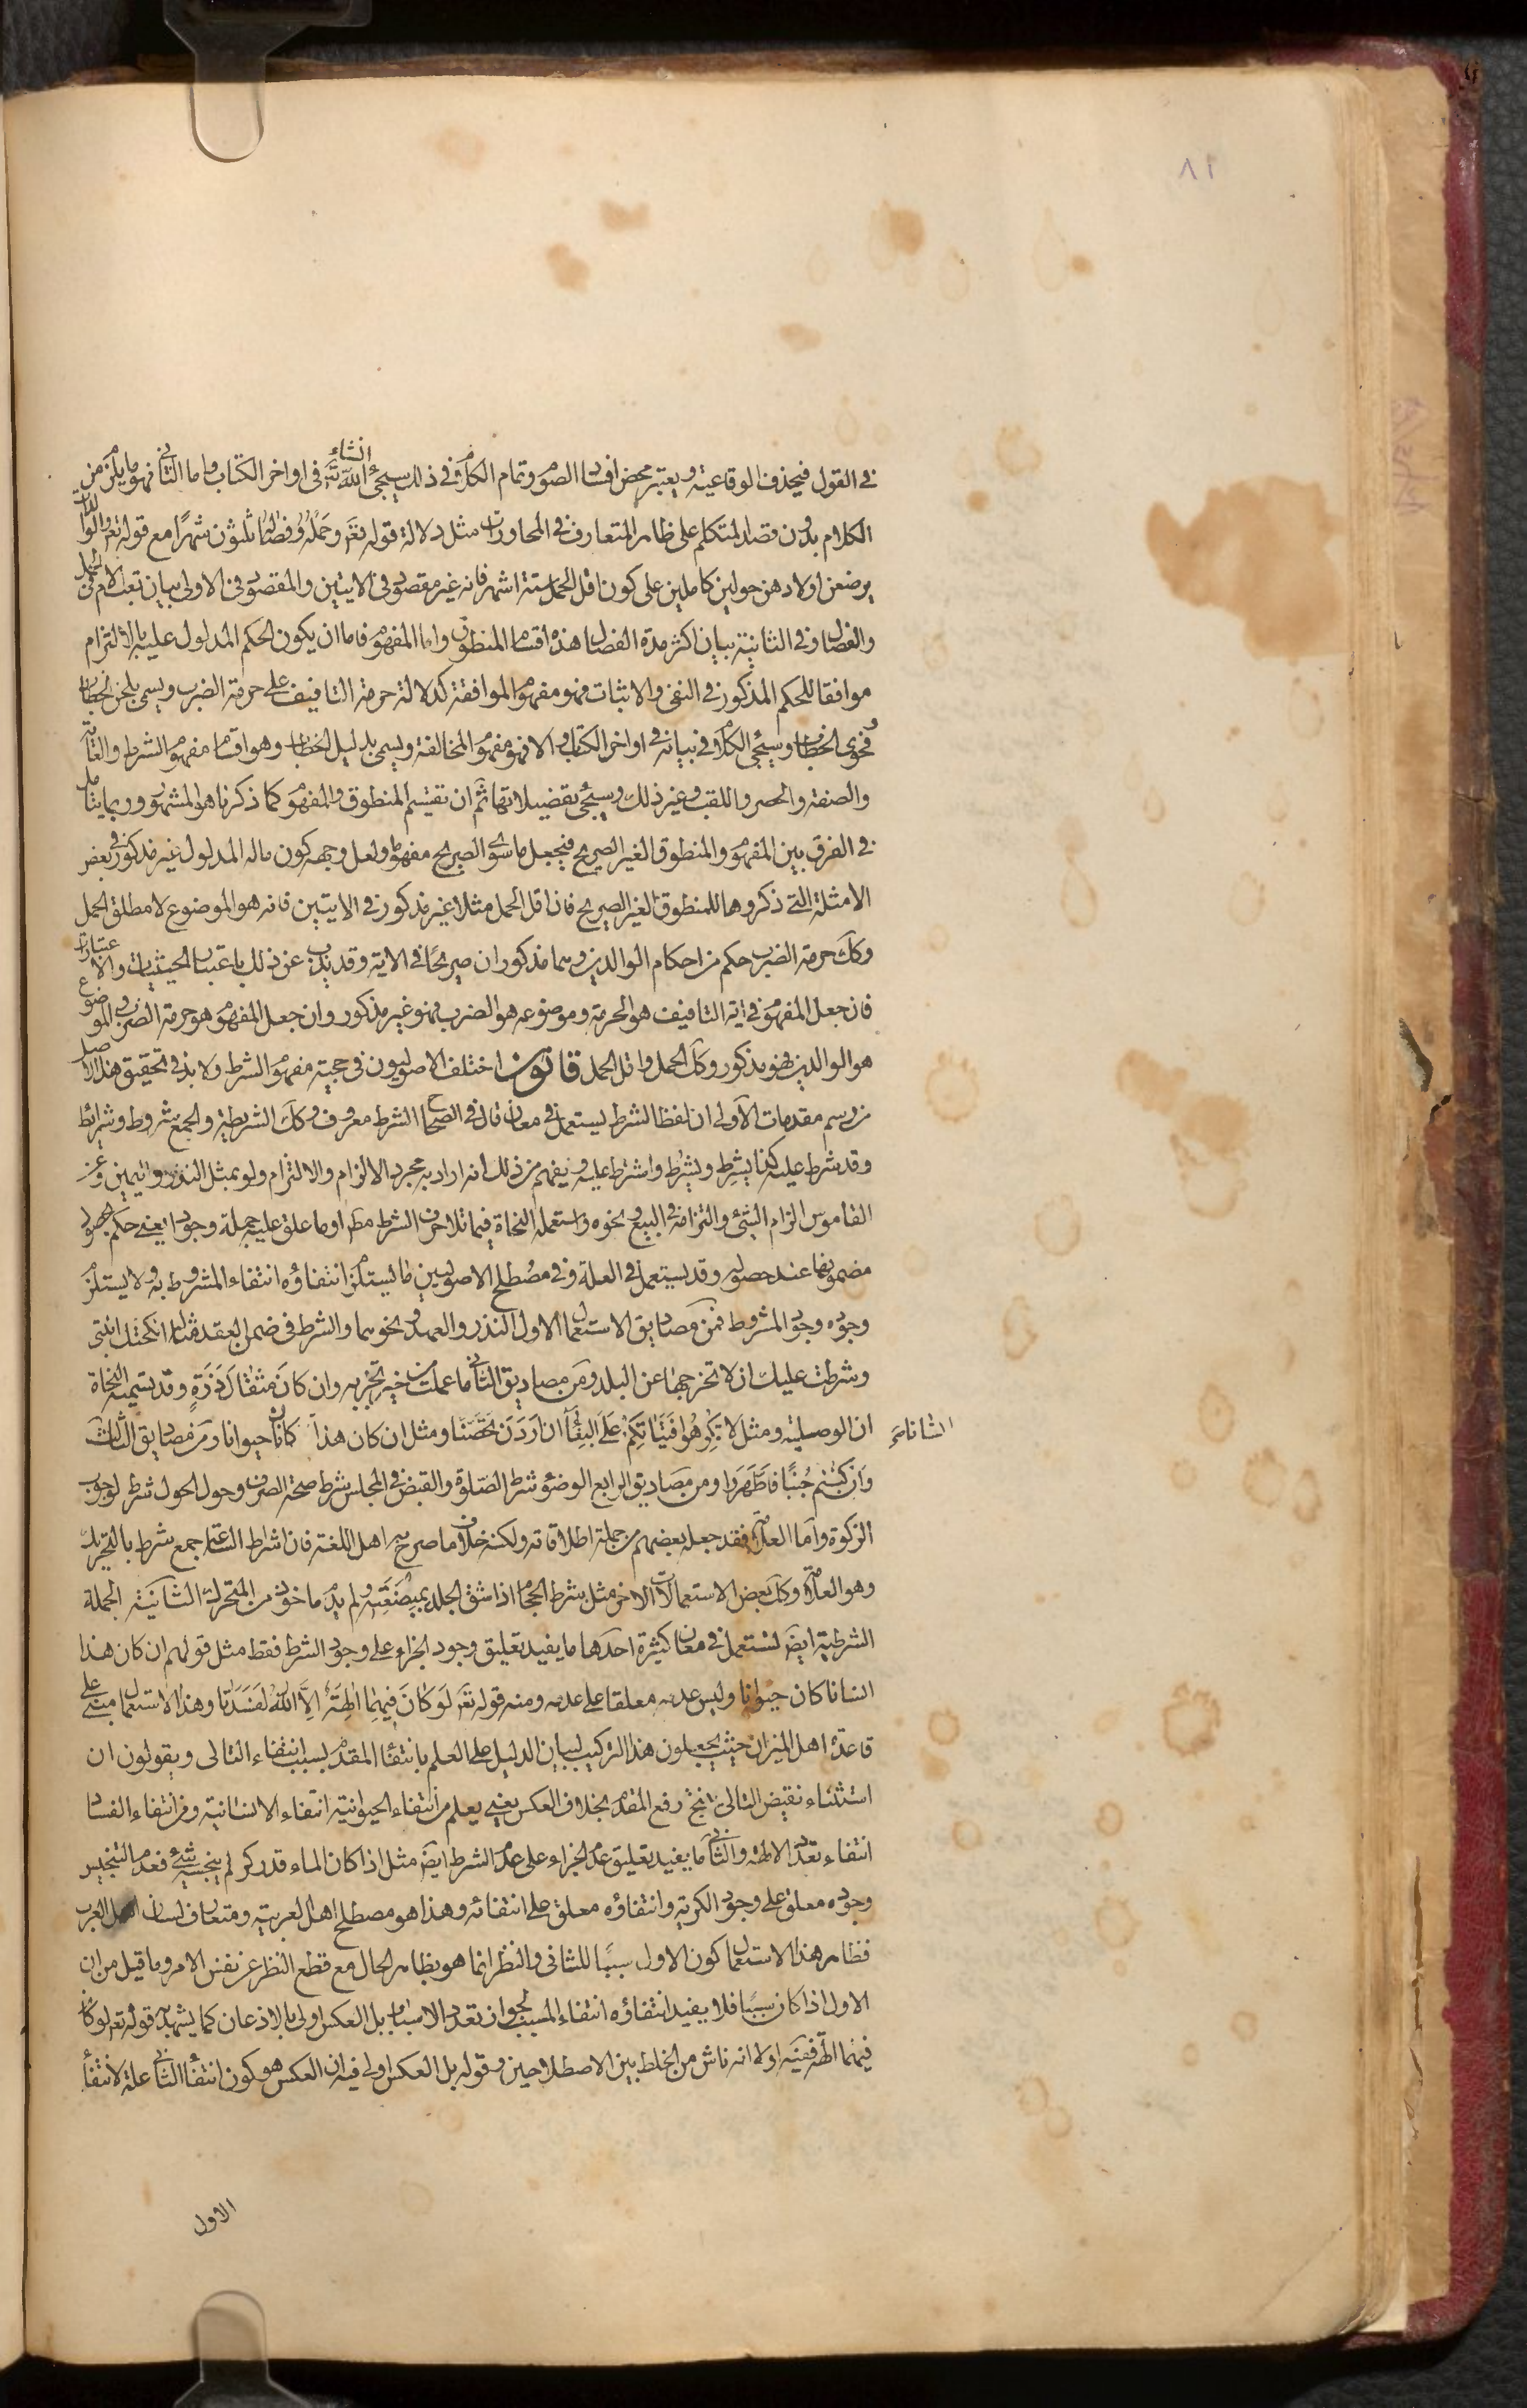 ٨١
في القول فيحذف الوقاعية ويعتبر محض افساد الصوم وتمام الكلام في ذلك سيجئ انشاء الله تعَ في اواخر الكتاب واما الثاني فهو ما يلزم من
الكلام بدون قصد المتكلم على ظاهر المتعارف في المحاورات مثل دلالة قوله تعَ وحمله وفصاله ثلثون شهرا مع قوله تعَ والوالدات
يرضعن اولادهن حولين كاملين على كون اقل الحمل ستة اشهر فانه غير مقصود في الايتين والمقصود في الاولى بيان تعب الام في الحمل
والفصال وفي الثانية بيان اكثر مدة الفصال هذه اقسام المنطوق واما المفهوم فاما ان يكون الحكم المدلول عليه بالالتزام
موافقا للحكم المذكور في النفي والاثبات فهو مفهوم الموافقة كدلالة حرمة التافيف على حرمة الضرب ويسمى بلحن الخطاب
وفحوى الخطاب وسيجئ الكلام في بيانه في اواخر الكتاب والا فهو مفهوم المخالفة ويسمى بدليل الخطاب وهو اقسام مفهوم الشرط والغاية
والصفة والحصر واللقب وغير ذلك وسيجئ تفصيلاتها ثم ان تقسيم المنطوق والمفهوم كما ذكرنا هو المشهور وربما يتامل
في الفرق بين المفهوم والمنطوق الغير الصريح فيجعل ما سوى الصريح مفهوما ولعل وجهه كون ماله المدلول غير مذكور في بعض
الامثلة التي ذكروها للمنطوق الغير الصريح فان اقل الحمل مثلا غير مذكور في الايتين فانه هو الموضوع لا مطلق الحمل
وكك حرمة الضرب حكم من احكام الوالدين وهما مذكوران صريحا في الاية وقد يذب عن ذلك باعتبار الحيثيات والاعتبارات
فان جعل المفهوم في اية التافيف هو الحرمة وموضوعه هو الضرب فهو غير مذكور وان جعل المفهوم هو حرمة الضرب والموضوع
هو الوالدين فهو مذكور وكك الحمل واقل الحمل قانون اختلف الاصوليون في حجية مفهوم الشرط ولا بد في تحقيق هذا الاصل
من رسم مقدمات الاولى ان لفظ الشرط يستعمل في معان قال في الصحاح الشرط معروف وكك الشريطة والجمع شروط وشرائط
وقد شرط عليه كذا يشرِط ويشرُط واشترط عليه ويفهم من ذلك انه اراد به مجرد الالزام والالتزام ولو بمثل النذور واليمين وعن
القاموس الزام الشئ والتزامه في البيع ونحوه واستعمله النحاة فيما تلا حرف الشرط مطَ او ما علق عليه جملة وجودا يعني حكم بحصول
مضمونها عند حصوله وقد يستعمل في العلة وفي مصطلح الاصوليين ما يستلزم انتفاؤه انتفاء المشروط به ولا يستلزم
وجوده وجود المشروط فمن مصاديق الاستعمال الاول النذر والعهد ونحوهما والشرط في ضمن العقد مثل انكحتك ابنتي
وشرطت عليك ان لا تخرجها عن البلد ومن مصاديق الثاني ما عملت من خير تجز به وان كان مثقال ذرة وقد يسميه النحاة
ان الوصلية ومثل لا تكرهوا فتياتكم على البغاء ان اردن تحصنا ومثل ان كان هذا كان حيوانا ومن مصاديق الثالث
انسانا صح
وان كنتم جنبا فاطهروا ومن مصاديق الرابع الوضوء شرط الصلوة والقبض في المجلس شرط صحة الصرف وحول الحول شرط لوجوب
الزكوة واما العلامة فقد جعله بعضهم من جملة اطلاقاته ولكنه خلاف ما صرح به اهل اللغة فان اشراط الساعة جمع شرط بالتحريك
وهو العلامة وكك بعض الاستعمالات الاخر مثل شرط الحجام اذا شق الجلد بمبضعته ولم يدم ماخوذ من المتحرك الثانية الجملة
الشرطية ايضَ تستعمل في معان كثيرة احدها ما يفيد تعليق وجود الجزاء على وجود الشرط فقط مثل قولهم ان كان هذا
انسانا كان حيوانا وليس عدمه معلقا على عدمه ومنه قوله تعَ لو كان فيهما الهة الا الله لفسدتا وهذا الاستعمال مبني على
قاعدة اهل الميزان حيث يجعلون هذا التركيب لبيان الدليل على العلم بانتفاء المقدم بسبب انتفاء التالي ويقولون ان
استثناء نقيض التالي ينتج رفع المقدم بخلاف العكس يعني يعلم من انتفاء الحيوانية انتفاء الانسانية ومن انتفاء الفساد
انتفاء تعدد الالهة والثاني ما يفيد تعليق عدم الجزاء على عدم الشرط ايضَ مثل اذا كان الماء قدر كر لم ينجسه شئ فعدم التنجيس
وجوده معلق على وجود الكرية وانتفاؤه معلق على انتفائه وهذا هو مصطلح اهل العربية ومتعارف لسان اهل العرب
فظاهر هذا الاستعمال كون الاول سببا للثاني والنظر انما هو بظاهر الحال مع قطع النظر عن نفس الامر وما قيل من ان
الاول اذا كان سببا فلا يفيد انتفاؤه انتفاء المسبب لجواز تعدد الاسباب بل العكس اولى بالاذعان كما يشهد به قوله تعَ لو كان
فيهما الهة ففيه اولا انه ناش من الخلط بين الاصطلاحين وقوله بل العكس اولى فيه ان العكس هو كون انتفاء الثاني علة لانتفاء
الاول